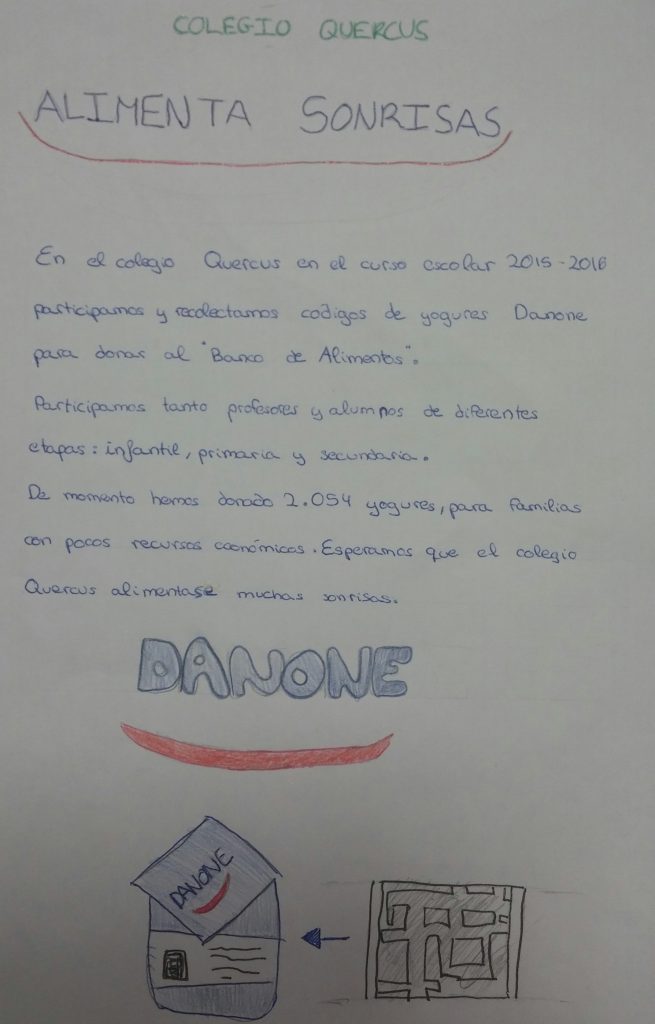 COLEGIO QUERCUS
ALIMENTA SONRISAS
En el colegio Quercus en el curso escolar 2015-2016
participamos y recolectamos codigos de yogures Danone
para donar al "Banco de Alimentos".
Participamos tanto profesores y alumnos de diferentes
etapas: infantil, primaria y secundaria.
De momento hemos donado 2.054 yogures, para familias
con pocos recursos económicos. Esperamos que el colegio
Quercus alimentase muchas sonrisas.
DANONE
DANONE